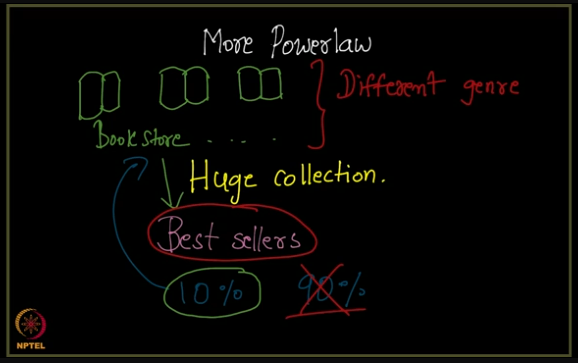 More Powerlaw
Different genre
Bookstore . . . . .
Huge collection.
Best sellers
10% 90%
NPTEL